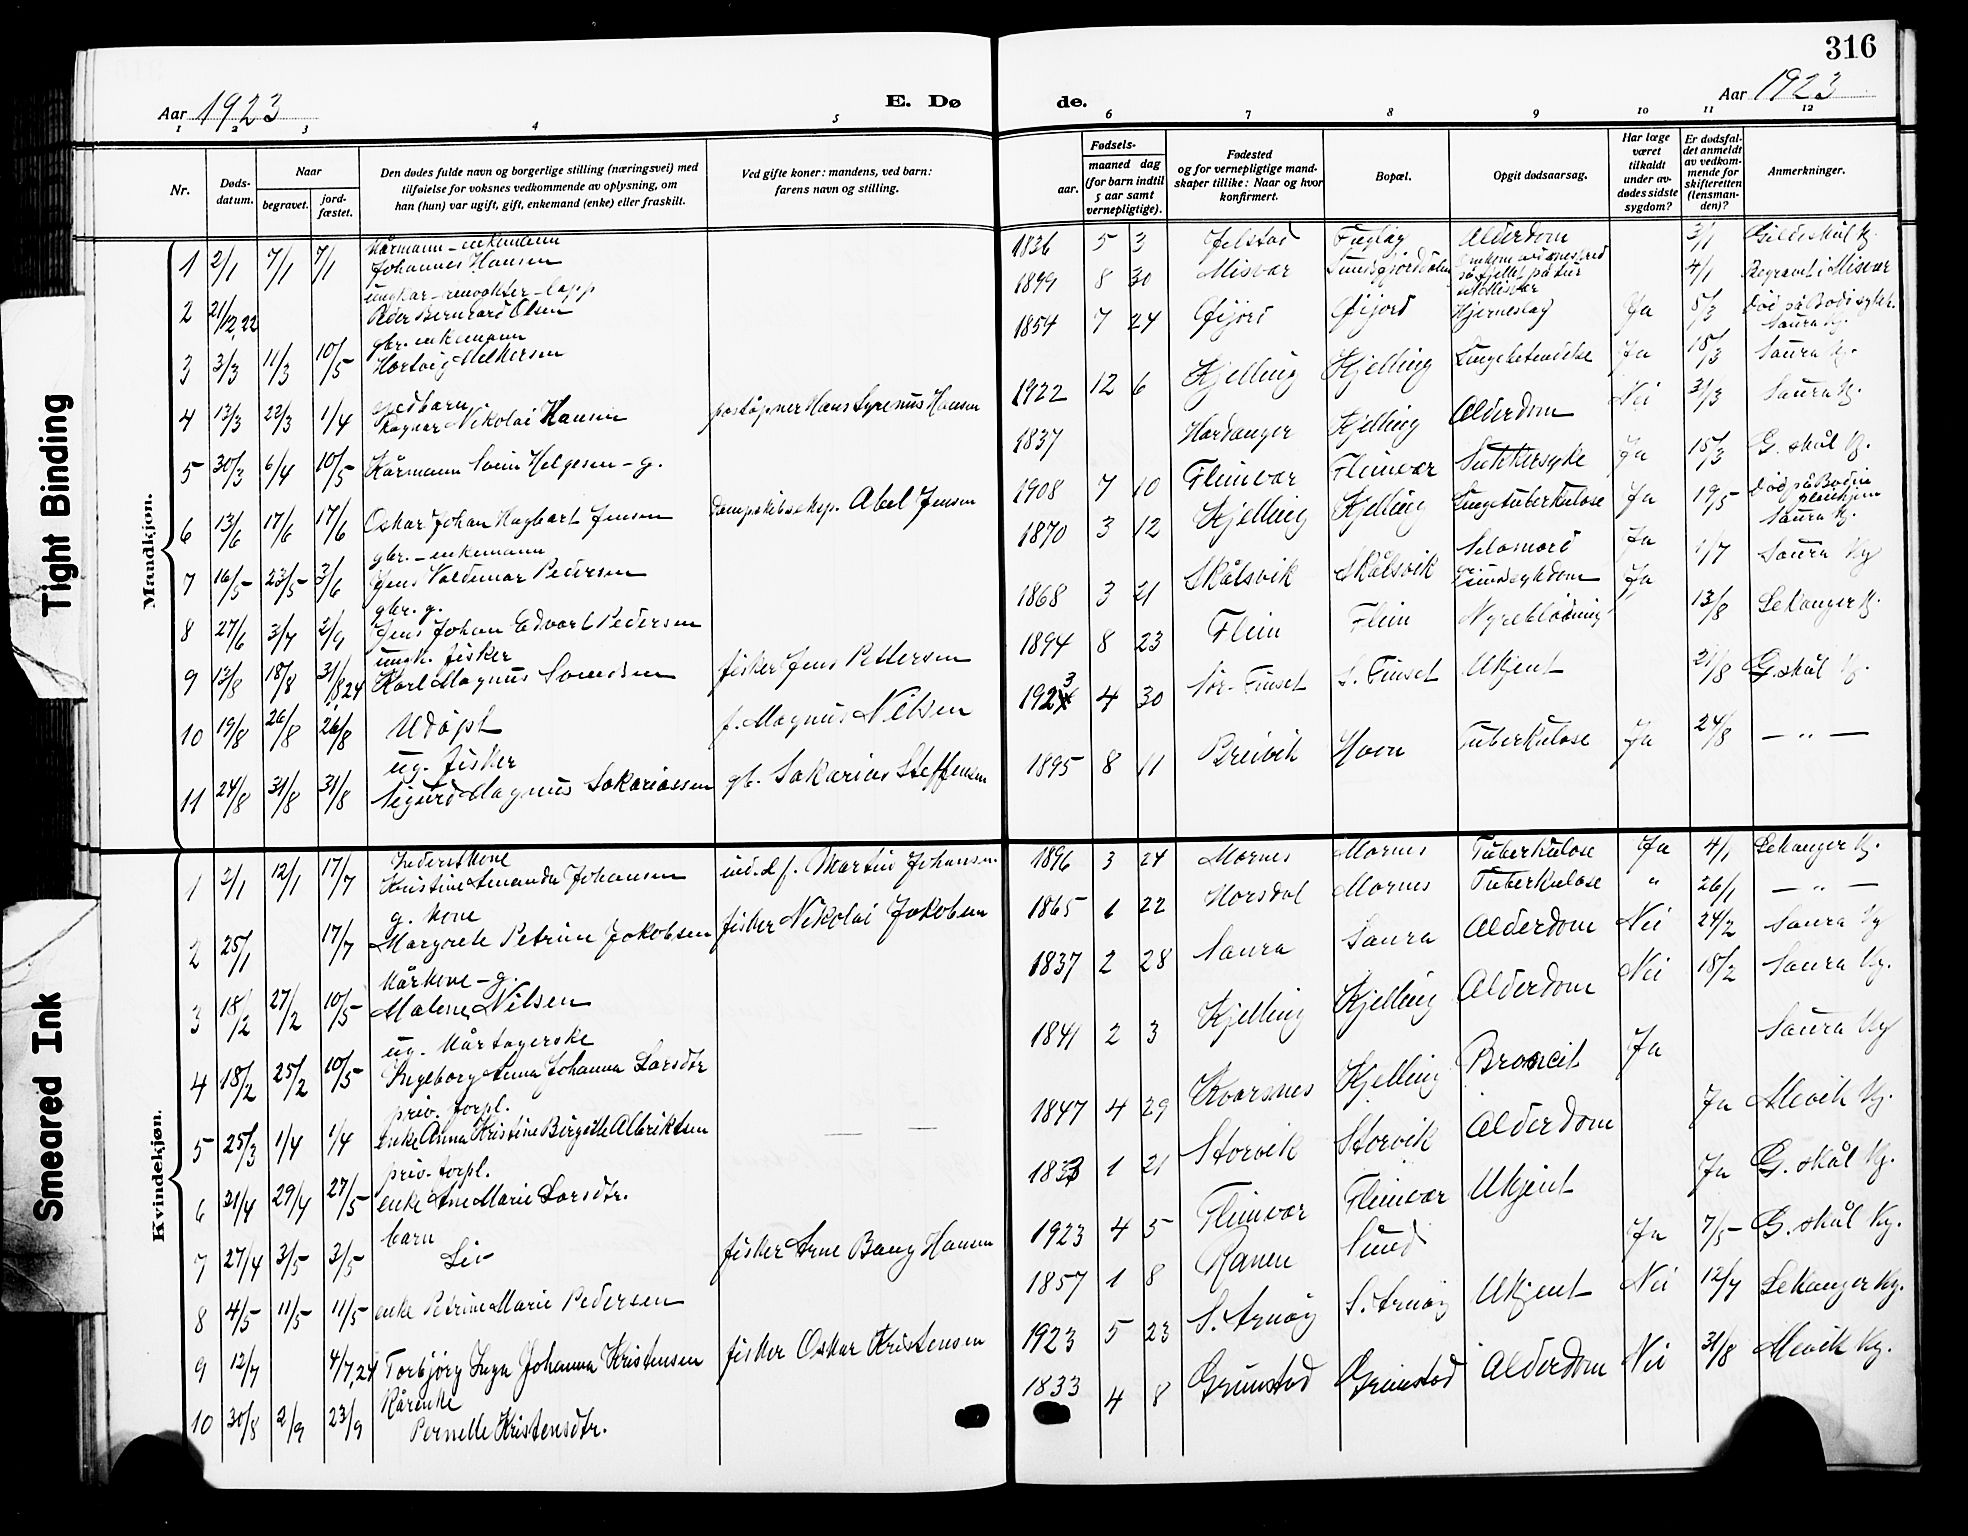 316
Aar 1923
E. Dø
de.
Aar 1923
1 2 3 4 5 6 7 8 9 10 11 12
Nr.
Døds-
datum.
Naar
begravet.
jord-
fæstet.
Den dødes fulde navn og borgerlige stilling (næringsvei) med
tilføielse for voksnes vedkommende av oplysning, om
han (hun) var ugift, gift, enkemand (enke) eller fraskilt.
Ved gifte koner: mandens, ved barn:
farens navn og stilling.
Fødsels-
aar.
maaned dag
(for barn indtil
5 aar samt
vernepligtige).
Fødested
og for vernepligtige mand-
skaper tillike: Naar og hvor
konfirmert.
Bopæl.
Opgit dødsaarsag.
Har læge
været
tilkaldt
under av-
dødes sidste
sygdom?
Er dødsfal-
det anmeldt
av vedkom-
mende for
skifteretten
(lensman-
den)?
Anmerkninger.
Mandkjøn.
Kårmann - enkemann
1 2/1 7/1 7/1 Johannes Hansen
ungkar - renvokter - lapp
2 21/12 22 Peder Bernhard Olsen
gbr. enkemann
3 3/3 11/3 10/5 Hartvig Melkersen
spedbarn
4 13/3 22/3 1/4 Ragnar Nikolai Hansen poståpner Hans Syrenus Hansen
5 30/3 6/4 10/5 Kårmann Svein Helgesen - g.
6 13/6 17/6 17/6 Oskar Johan Hagbart Jensen Dampskibseksp. Abel Jensen
gbr. - enkemann
7 16/5 23/5 3/6 Jens Valdemar Pedersen
gbr. g.
8 27/6 3/7 2/9 Jens Johan Edvart Pedersen
ungk. fisker
9 13/8 18/8 31/8 24 Karl Magnus Svendsen fisker Jens Pettersen
10 19/8 26/8 26/8 Udøpt f. Magnus Nilsen
ug. fisker
11 24/8 31/8 31/8 Sigurd Magnus Sakariassen gb. Sakarias Steffensen
1836 5 3 Jelstad Fugløy Alderdom 3/1 Gildeskål Kg.
1899 8 30 Misvær Sundsfjorddalen på fjellet på tur 4/1 Begravet i Misvær
1854 7 24 Øijord Øijord Hjerneslag Ja 5/3 Død på Bodø sykh.
Saura Kg.
1922 12 6 Kjelling Kjelling Lungebetendelse Ja 15/3 Saura Kg.
1837 Hardanger Kjelling Alderdom Nei 31/3 Saura Kg.
1908 7 10 Fleinvær Fleinvær Sukkersyke Ja 15/3 G. skål Kg.
1870 3 12 Kjelling Kjelling Lungetuberkulose Ja 19/5 Død på Bodin
pleiehjem
Saura Kg.
1868 3 21 Skålsvik Skålsvik Selvmord Ja 1/7 Saura Kg
1894 8 23 Flein Flein Nyreblødning Ja 13/8 Lekanger Kg.
1923 4 30 Sør-Finset S. Finset Ukjent 21/8 G. skål Kg.
1895 8 11 Breivik Hovn Tuberkulose Ja 24/8 — „ —
Kvindekjøn.
Inderstkone
1 3/1 12/1 17/7 Kristine Amanda Johansen ind. & f. Martin Johansen
g. kone
2 25/1 17/7 Margrete Petrine Jakobsen fisker Nikolai Jakobsen
Kårkone - g.
3 18/2 27/2 10/5 Malene Nilsen
ug. Kårtagerske
4 18/2 25/2 10/5 Ingeborg Anna Johanna Larsdtr
priv. forpl.
5 25/3 1/4 1/4 enke Anna Kristine Birgitte Albriktsen — —
priv. forpl.
6 21/4 29/4 27/5 enke Ane Marie Larsdtr.
barn
7 27/4 3/5 3/5 Liv fisker Arne Bang Hansen
8 4/5 11/5 11/5 enke Petrine Marie Pedersen
9 12/7 4/7, 24 Torbjørg Inga Johanna Kristensen fisker Oskar Kristensen
Kårenke
10 30/8 2/9 23/9 Pernelle Kristensdtr.
1896 3 24 Mornes Mornes Tuberkulose Ja 4/1 Lekanger Kg.
1865 1 22 Horsdal Mornes Tuberkulose " 26/1 — „ —
1837 2 28 Saura Saura Alderdom Nei 24/2 Saura Kg
1841 2 3 Kjelling Kjelling Alderdom Nei 18/2 Saura Kg.
1847 4 29 Kvarsnes Kjelling Broncit Ja Saura Kg
1833 1 21 Storvik Storvik Alderdom Ja Mevik Kg.
1923 4 5 Fleinvær Fleinvær Ukjent Ja G. skål Kg.
1857 1 8 Ranen Sund Ja 7/5 G. skål Kg.
1923 5 23 S. Arnøy S. Arnøy Ukjent Nei 12/7 Lekanger Kg.
1833 4 8 Grimstad Grimstad Alderdom Nei 31/8 Mevik Kg.
Tight Binding
Smeared Ink